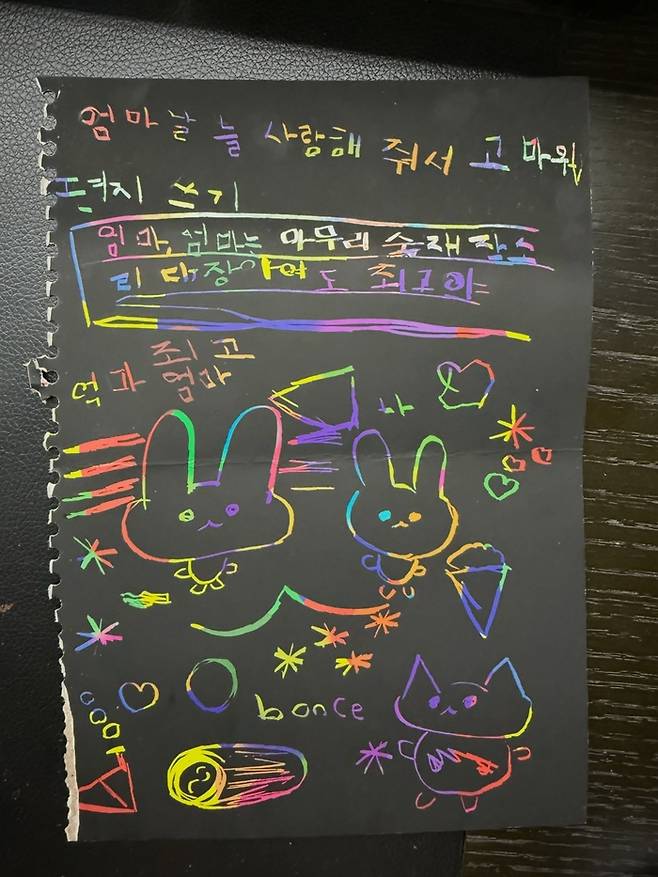 엄마 날 늘 사랑해 줘서 고마워
편지 쓰기
엄마, 엄마는 아무리 숙재 잔소
리 대장이여도 최고야
역과 최고
엄마
나
bonce